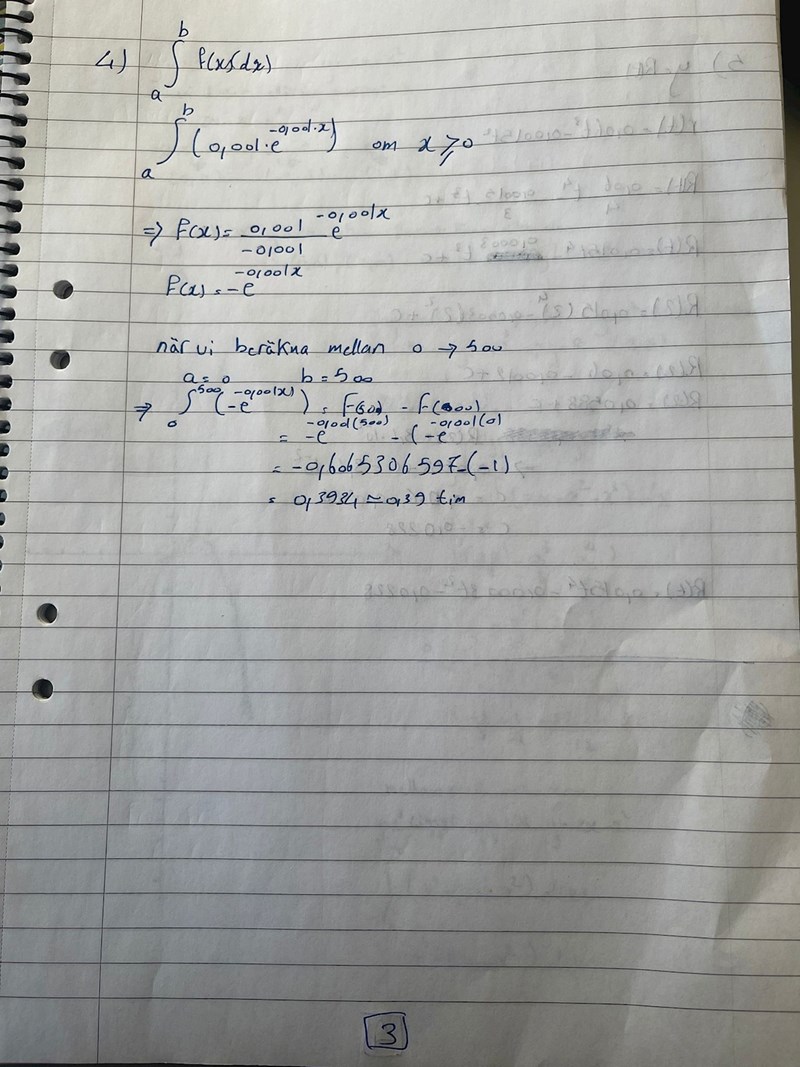 4) ∫ₐᵇ f(x)(dx)
∫ₐᵇ (0,001·e^(-0,001·x)) om x ⩾ 0
⇒ F(x) = 0,001/-0,001 e^(-0,001x)
F(x) = -e^(-0,001x)
när vi beräkna mellan 0 → 500
a = 0 b = 500
⇒ ∫₀⁵⁰⁰ (-e^(-0,001(x))) = F(500) - F(000)
= -e^(-0,001(500)) - (-e^(-0,001(0)
= -0,6065306597-(-1)
= 0,3934 ≈ 0,39 tim
3